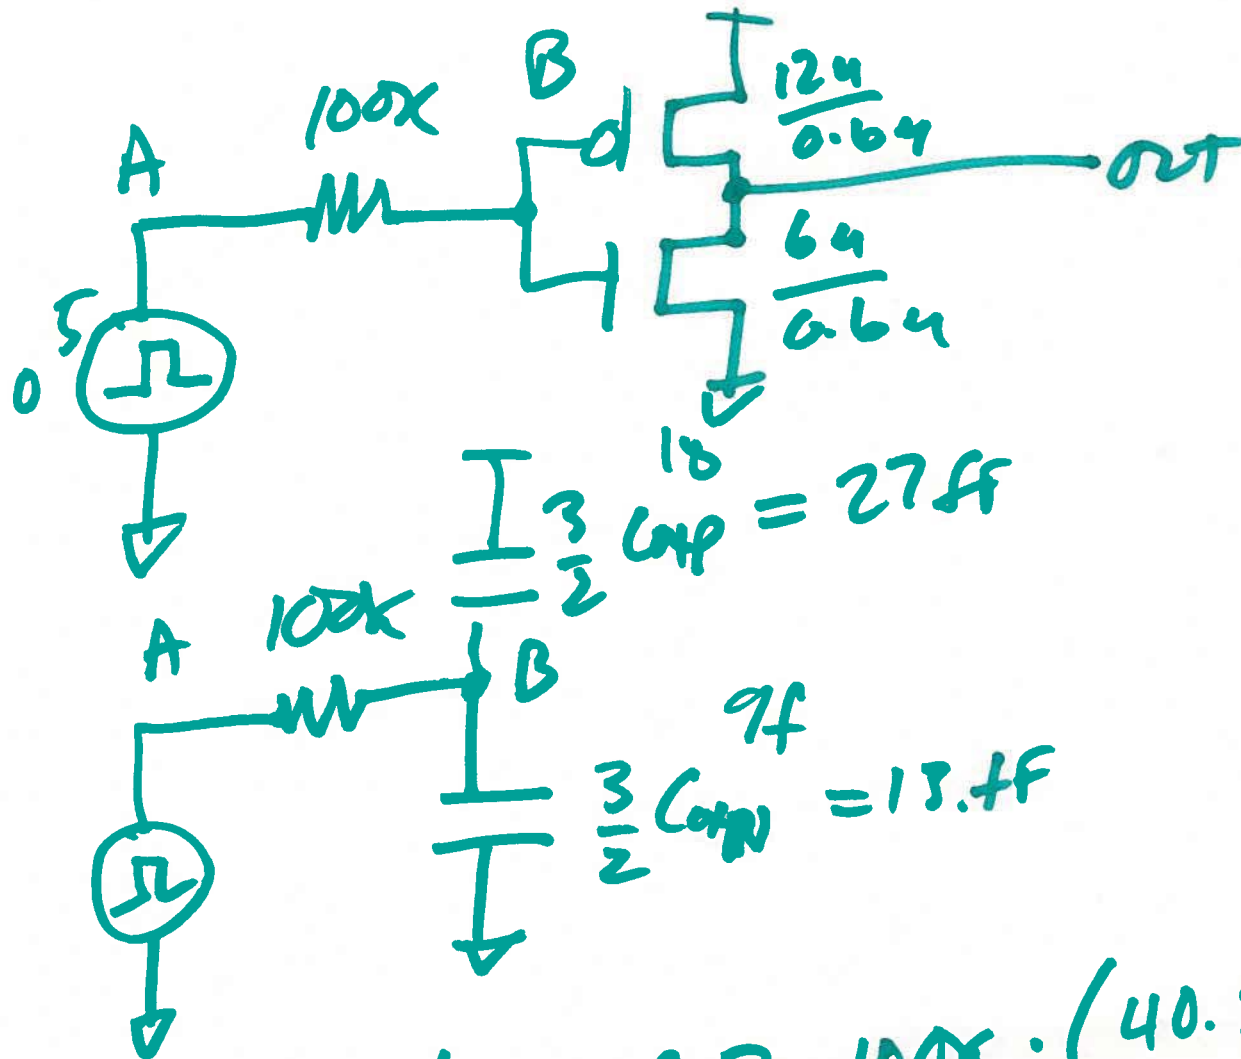 A 100K B 12u/0.6u
out
5
0
6u/0.6u
18
3/2 Coxp = 27fF
A 100K B
9f
3/2 Coxn = 13.fF
100K · (40.